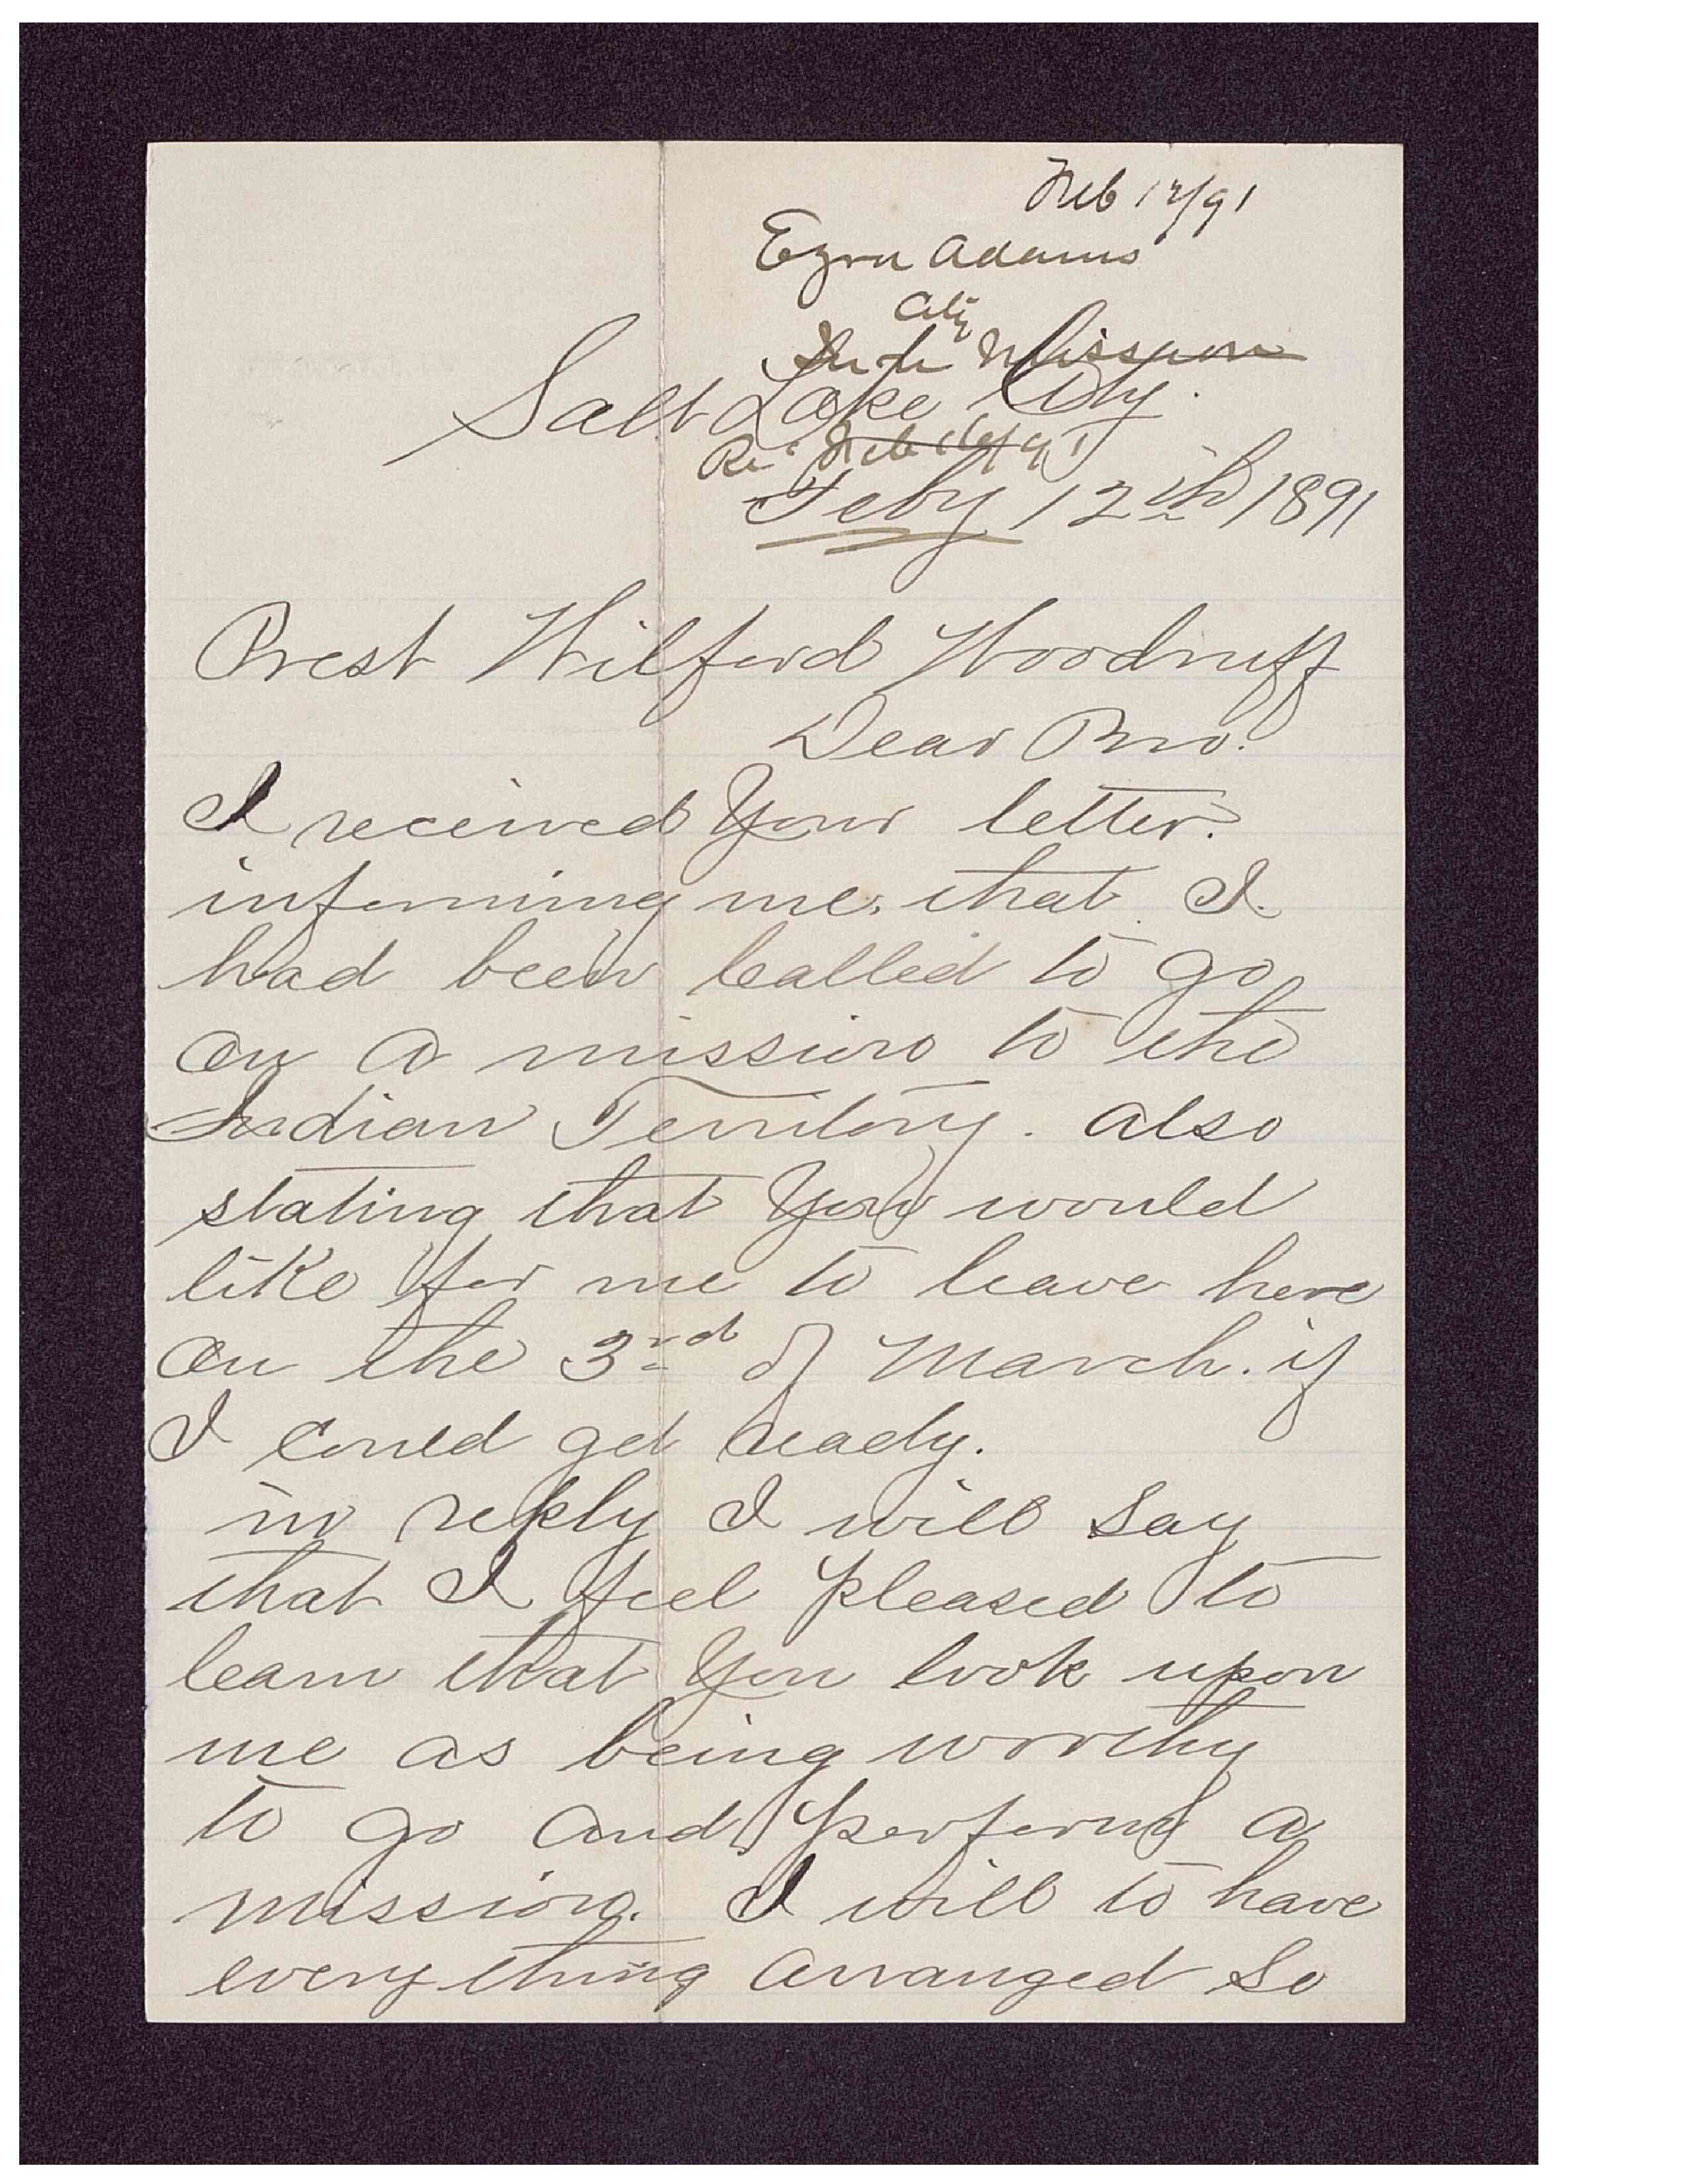 Feb 12/91
Ezra Adams
City
Salt Lake City.
Rec. Feb 16/91
Feby 12th 1891
Prest Wilford Woodruff
Dear Bro.
I received Your letter.
informing me. that I
had been Called to go
on a mission to the
Indian Territory. also
stating that You would
like for me to leave here
on the 3rd of March. if
I could get ready.
in reply I will say
that I feel pleased to
learn that You look upon
me as being worthy
to go and perform a
mission. I will to have
every thing arranged so